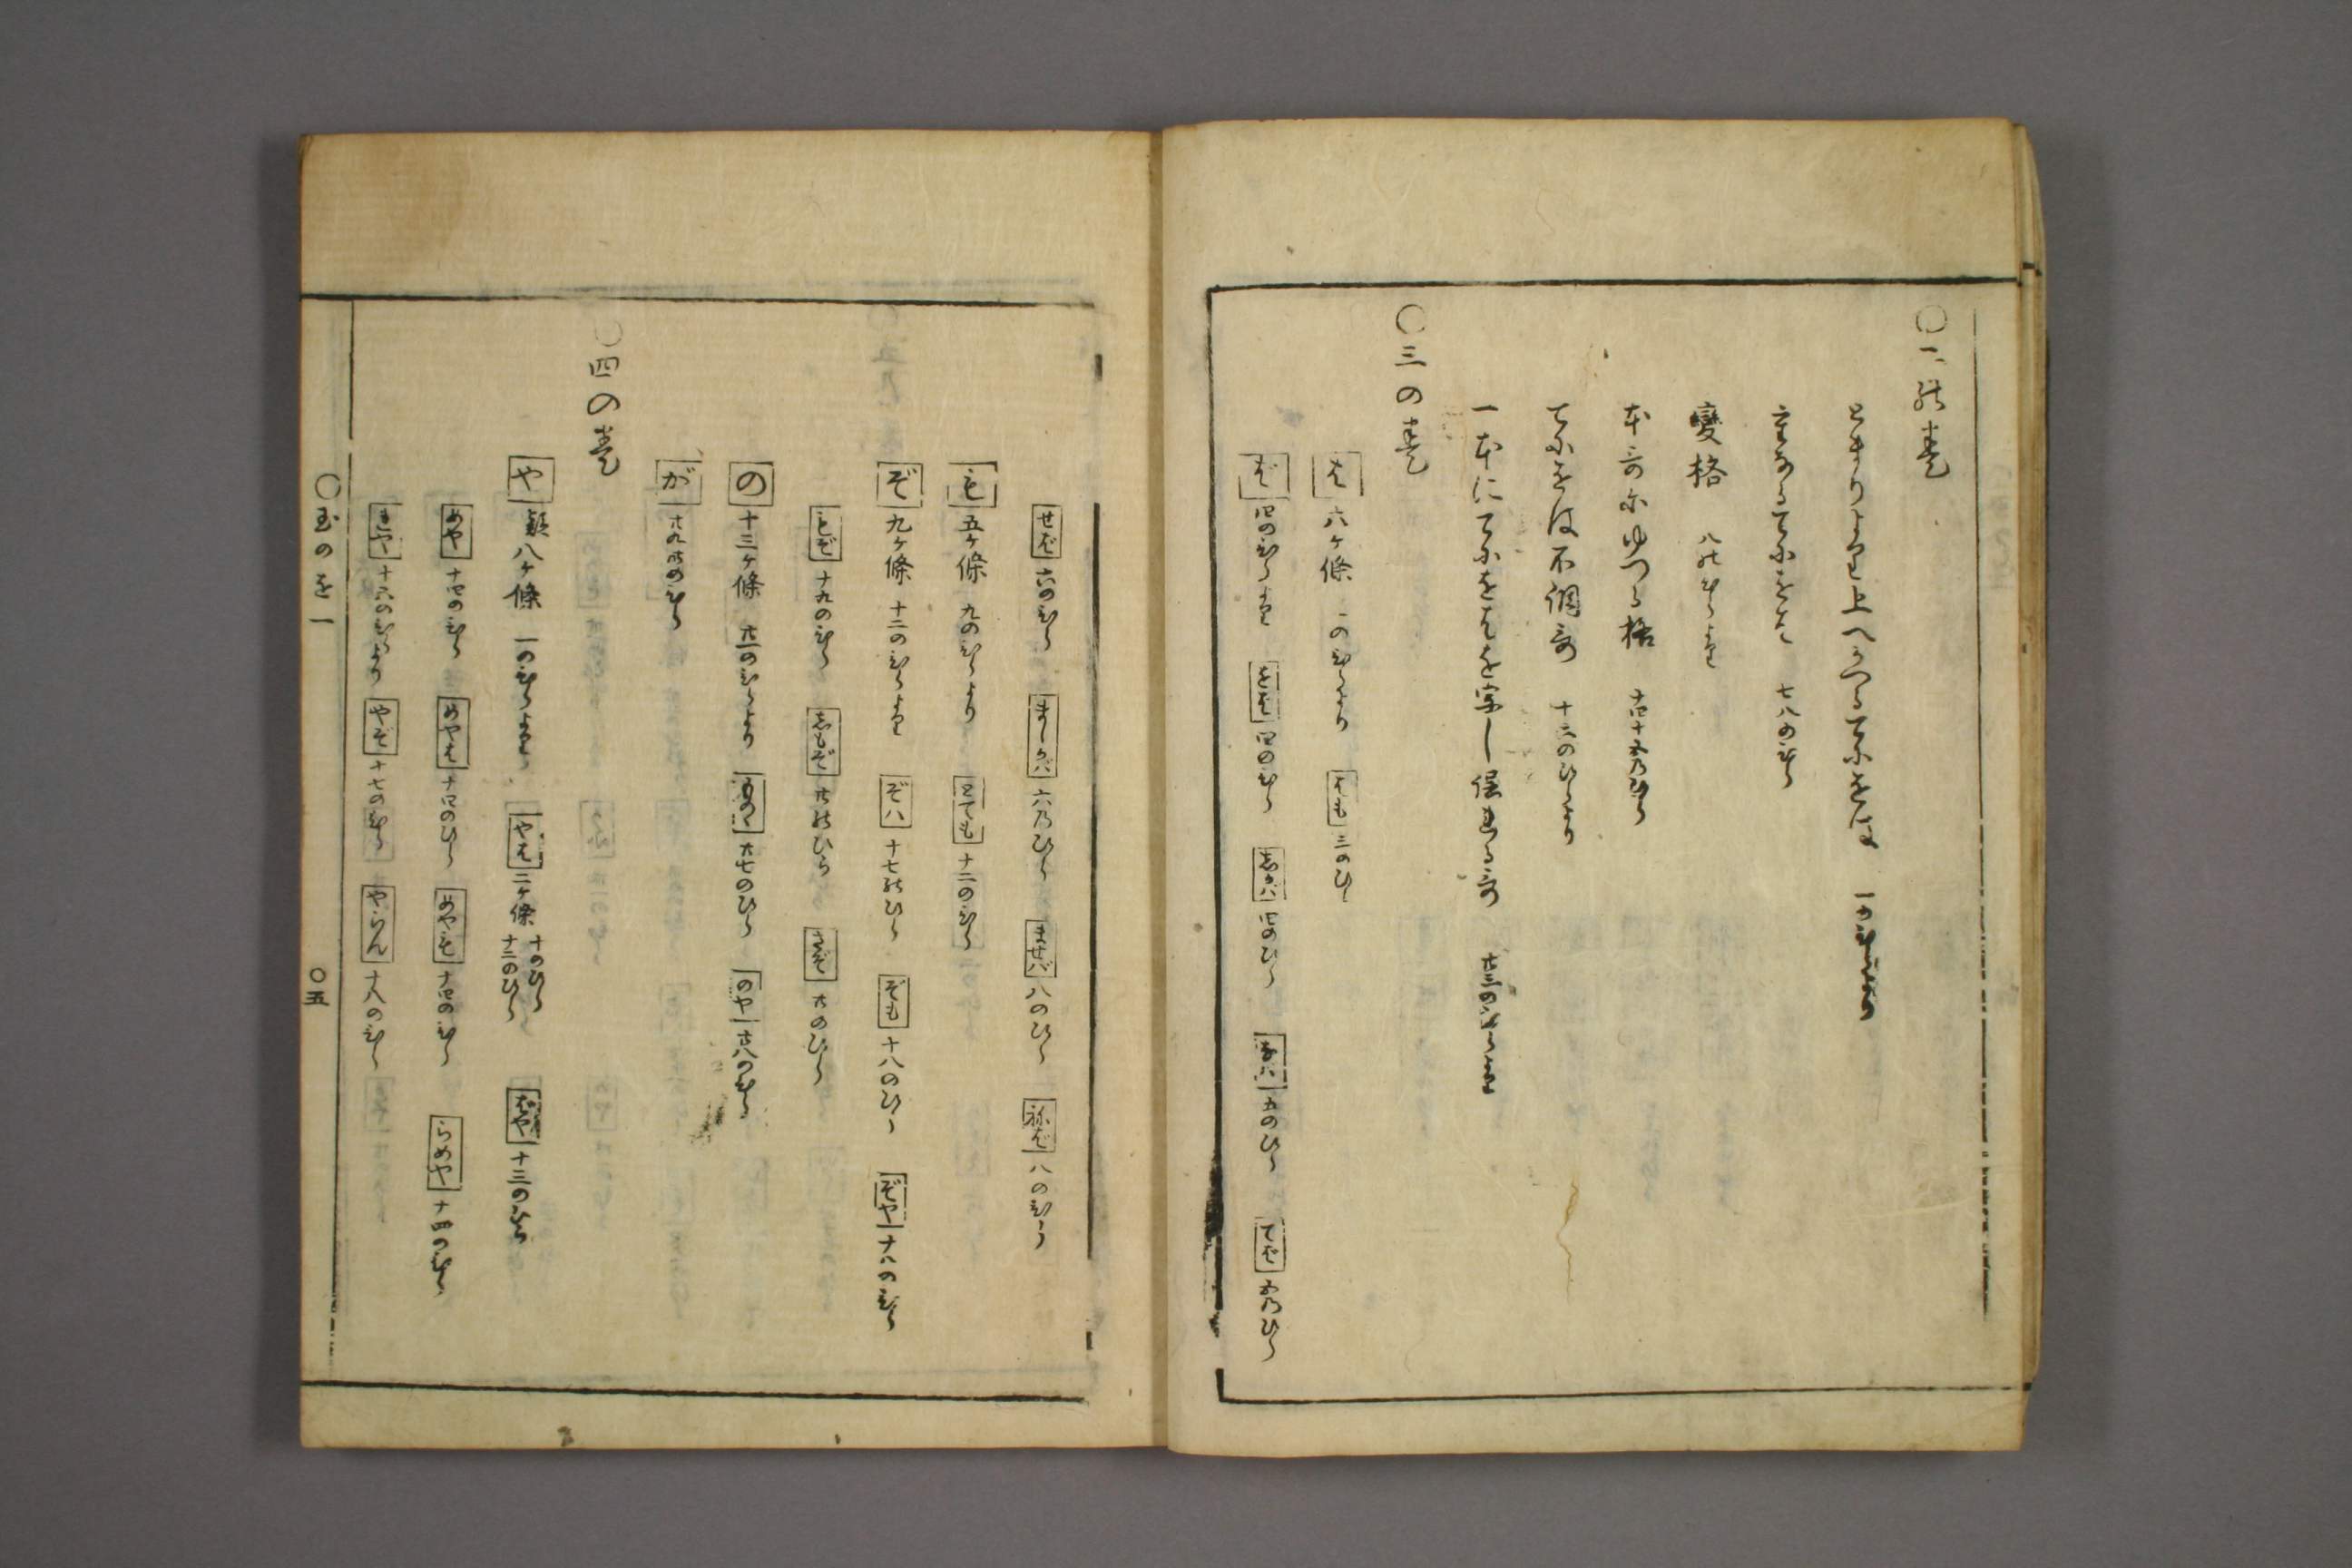 〇二の巻
とまりより上へかへるてにをは 一のひらより
重なるてにをは 七八のひら
變格 八のひらより
本哥にゆづる格 十四十五乃ひら
てにをは不調哥 十二のひらより
一本にてにをはを寫し誤れる哥 廿三のひらより
〇三の巻
は 六ケ條 一のひらより はも 三のひら
ば 四のひらより をば 四のひら しかバ 四のひら なバ 五のひら てば 五乃ひら
せば 六のひら ましかバ 六乃ひら ませバ 八のひら ねば 八のひら
も 五ケ條 九のひらより とても 十二のひら
ぞ 九ケ條 十二のひらより ぞハ 十七のひら ぞも 十八のひら ぞや 十八のひら
もぞ 十九のひら しもぞ 廿のひら さぞ 廿のひら
の 十三ケ條 廿一のひらより ものゝ 廿七のひら のや 廿八のひら
が 廿九丗のひら
〇四の巻
や 疑八ケ條 一のひらより やは 二ケ條 十のひら 十二のひら ばや 十三のひら
めや 十四のひら めやは 十四のひら めやも 十四のひら らめや 十四のひら
れや 十六のひらより やぞ 十七のひら やらん 十八のひら
〇玉のを一 〇五